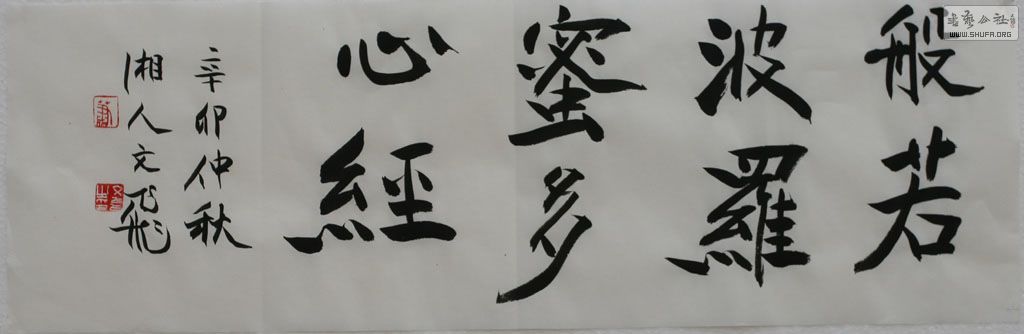 般若
波羅
蜜多
心經
辛卯仲秋
湘人文飛
書藝公社
WWW.SHUFA.ORG